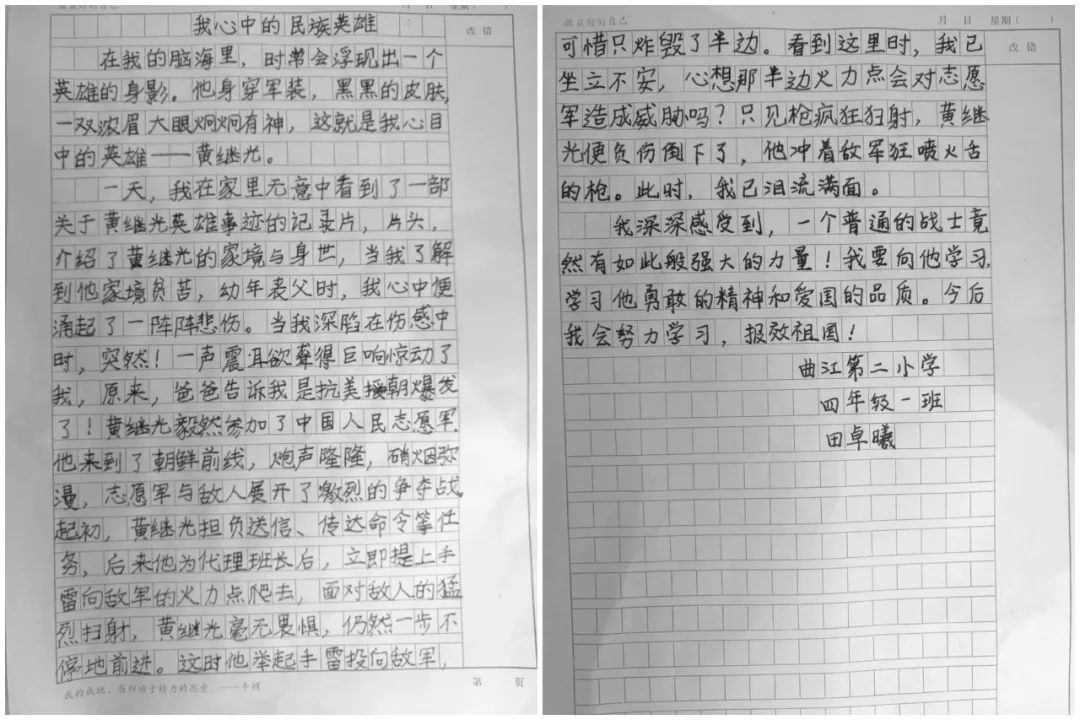 我心中的民族英雄
改错
在我的脑海里，时常会浮现出一个
英雄的身影。他身穿军装，黑黑的皮肤，
一双浓眉大眼炯炯有神，这就是我心目
中的英雄——黄继光。
一天，我在家里无意中看到了一部
关于黄继光英雄事迹的记录片，片头，
介绍了黄继光的家境与身世，当我了解
到他家境贫苦，幼年丧父时，我心中便
涌起了一阵阵悲伤。当我深陷在伤感中
时，突然！一声震耳欲聋得巨响惊动了
我，原来，爸爸告诉我是抗美援朝爆发
了！黄继光毅然参加了中国人民志愿军.
他来到了朝鲜前线，炮声隆隆，硝烟弥
漫，志愿军与敌人展开了激烈的争夺战
起初，黄继光担负送信、传达命令等任
务，后来他为代理班长后，立即提上手
雷向敌军的火力点爬去，面对敌人的猛
烈扫射，黄继光毫无畏惧，仍然一步不
停地前进。这时他举起手雷投向敌军，
第 页
做最好的自己
月 日 星期（ ）
改错
可惜只炸毁了半边。看到这里时，我已
坐立不安，心想那半边火力点会对志愿
军造成威胁吗？只见枪疯狂扫射，黄继
光便负伤倒下了，他冲着敌军狂喷火舌
的枪。此时，我已泪流满面。
我深深感受到，一个普通的战士竟
然有如此般强大的力量！我要向他学习，
学习他勇敢的精神和爱国的品质。今后
我会努力学习，报效祖国！
曲江第二小学
四年级一班
田卓曦